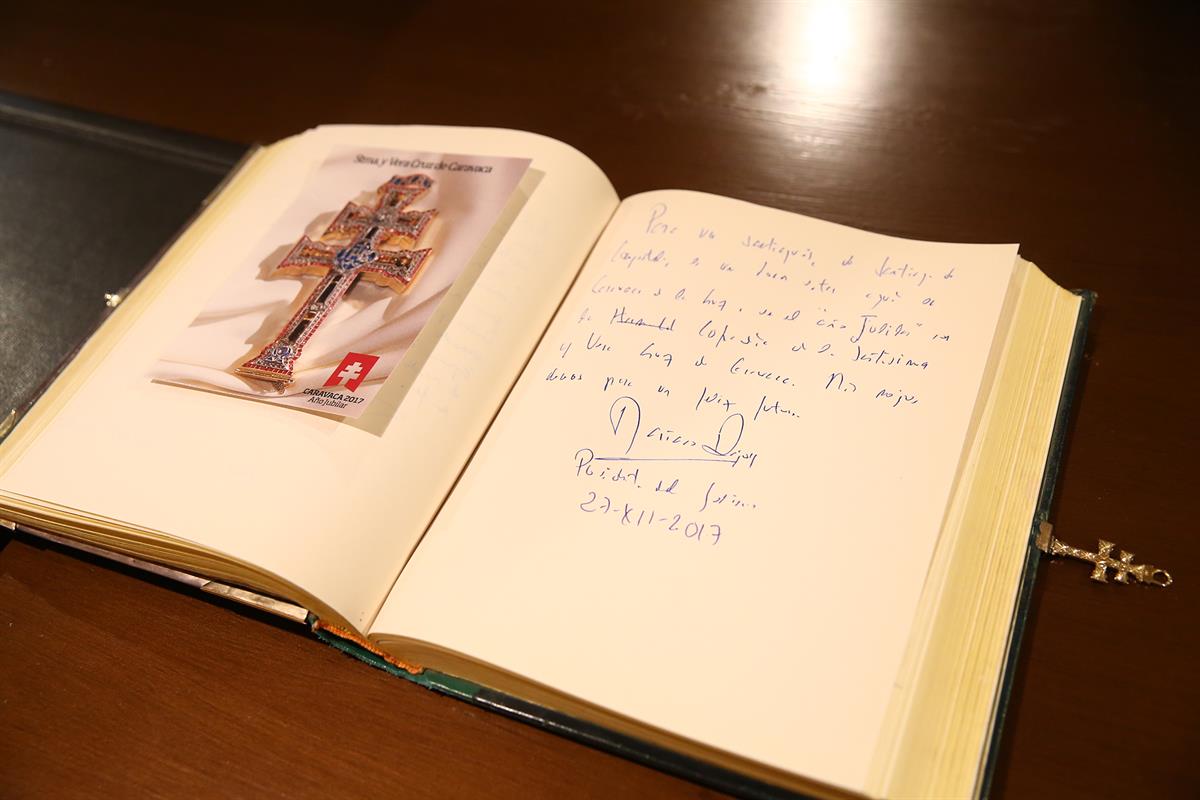 Stma y Vera Cruz de Caravaca
CARAVACA 2017
Año Jubilar
Para un santiagués, de Santiago de
Compostela, es un buen estar aquí en
Caravaca de la Cruz, en el "año Jubilar" con
la Hermandad Cofradía de la Santísima
y Vera Cruz de Caravaca. Mis mejores
deseos para un feliz futuro.
Mariano Rajoy
Presidente del Gobierno
27-XII-2017